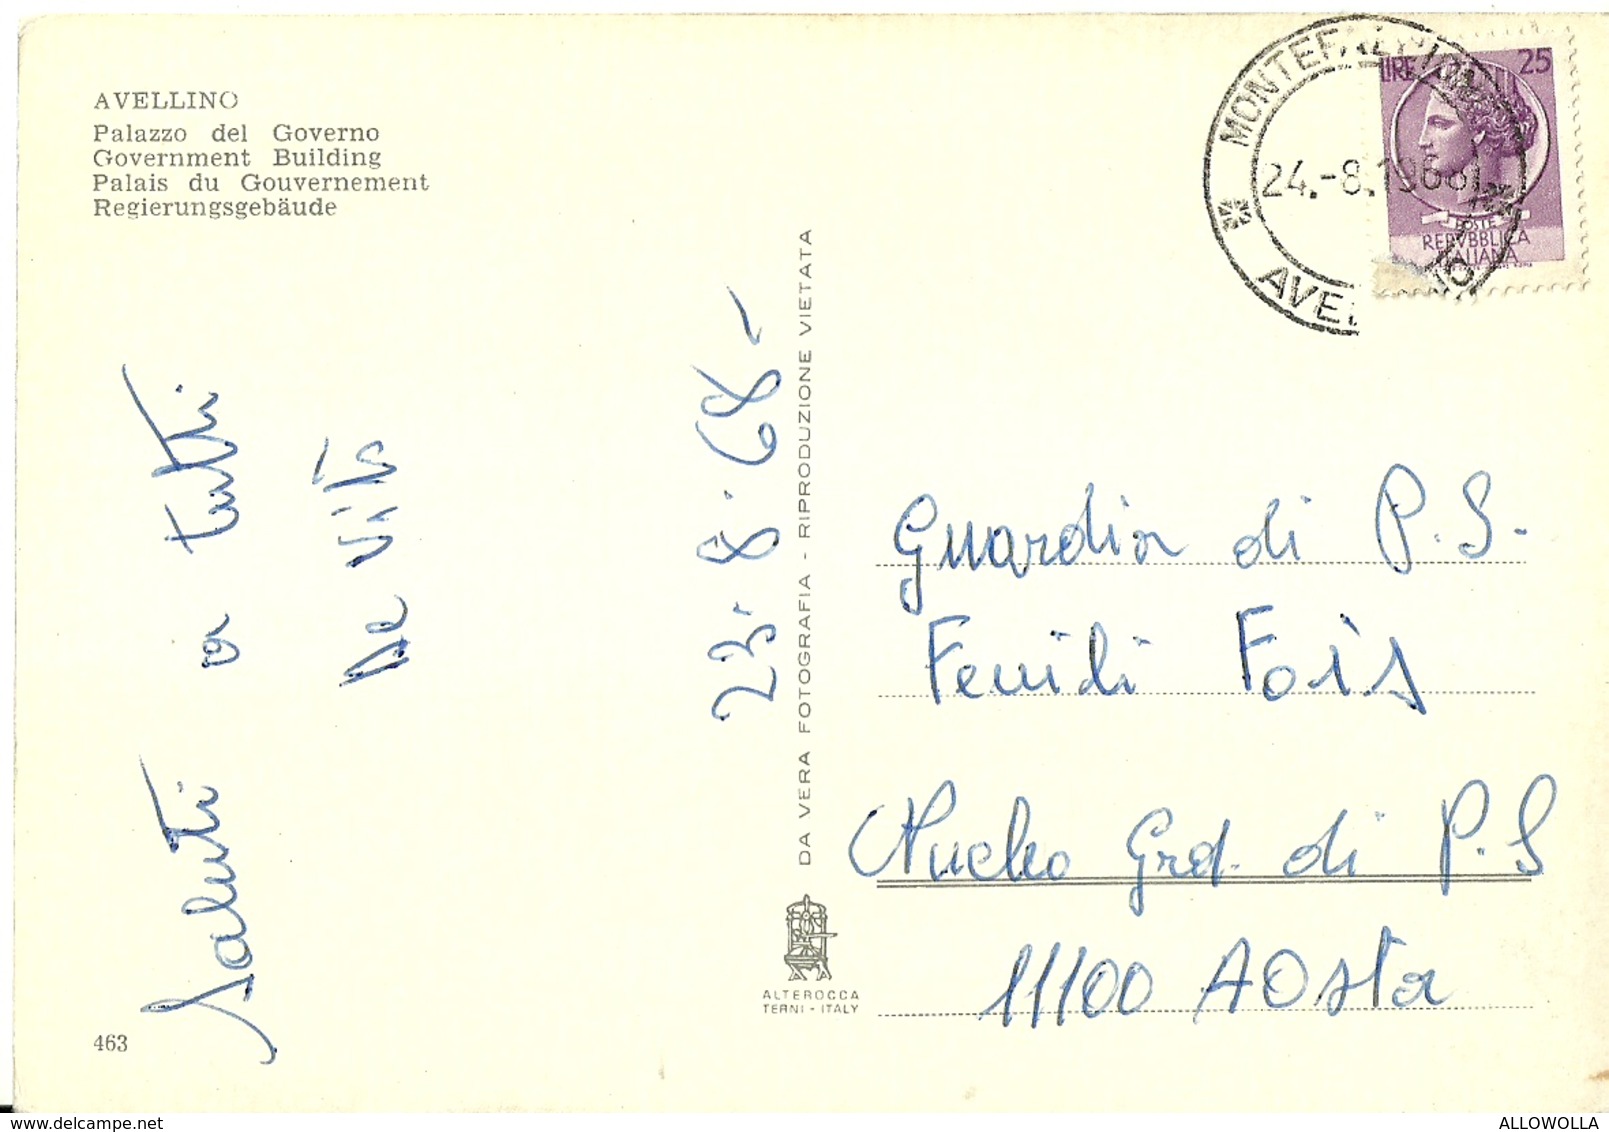 AVELLINO
Palazzo del Governo
Government Building
Palais du Gouvernement
Regierungsgebäude
Saluti a tutti
De Vito
23.8.68-
DA VERA FOTOGRAFIA - RIPRODUZIONE VIETATA
ALTEROCCA
TERNI - ITALY
463
24.-8.1968
LIRE 25
POSTE
REPVBBLICA
ITALIANA
Guardia di P.S.
Fois
Nucleo Grd. di P.S
11100 AOsta
www.delcampe.net
ALLOWOLLA